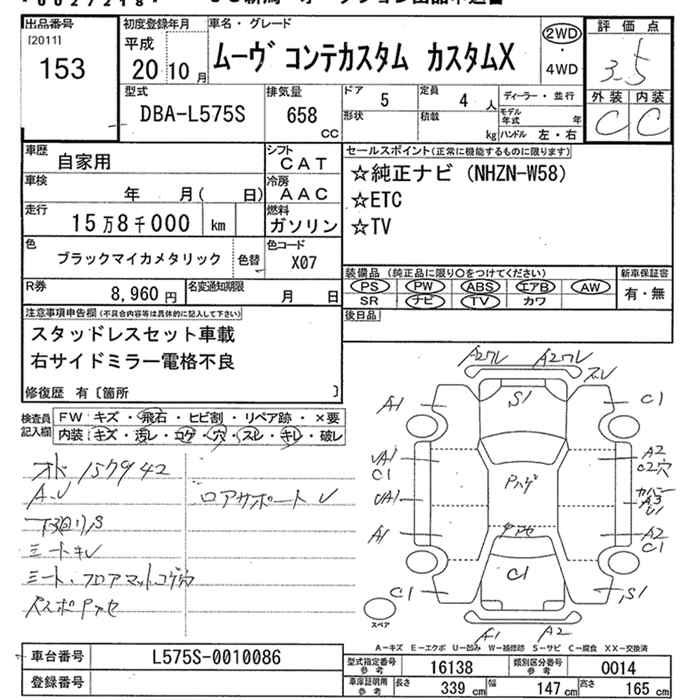 出品番号
[2011]
153
初度登録年月
平成
20 10 月
車名・グレード
ムーヴ コンテカスタム カスタムX
2WD
・
4WD
評価点
3.5
外装 内装
C C
型式
DBA-L575S
排気量
658
cc
ドア
5
定員
4 人
形状
積載
kg
ディーラー・並行
モデル年式 年
ハンドル 左・右
車歴
自家用
シフト
CAT
車検
年 月( 日)
冷房
AAC
走行
15万8千000 km
燃料
ガソリン
色
ブラックマイカメタリック
色替
色コード
X07
R券
8,960 円
名変通知期限
月 日
セールスポイント(正常に機能するものに限ります)
☆純正ナビ (NHZN-W58)
☆ETC
☆TV
装備品 (純正品に限り○をつけてください)
PS PW ABS エアB AW
SR ナビ TV カワ
新車保証書
有・無
後日品
注意事項申告欄(不具合内容等は具体的に記入して下さい)
スタッドレスセット車載
右サイドミラー電格不良
修復歴 有〔箇所 〕
検査員
記入欄
FW キズ・飛石・ヒビ割・リペア跡・×要
内装:キズ・汚レ・コゲ・穴・スレ・キレ・破レ
A.U
ロアサポートU
シートキレ
シート・フロアマットコゲ穴
A2ワレ A2ワレ
スレ
S1
A1
C1
UA1
C1
UA1
A1
C1
A2
C2穴
カバー
A3
A2
C1
S1
C1
A1 A2
スペア
A-キズ E-エクボ U-凹み W-補修跡 S-サビ C-腐食 XX-交換済
車台番号
L575S-0010086
登録番号
型式指定番号
参考
16138
類別区分番号
参考
0014
車庫証明用
参考
長さ 339 cm
幅 147 cm
高さ 165 cm